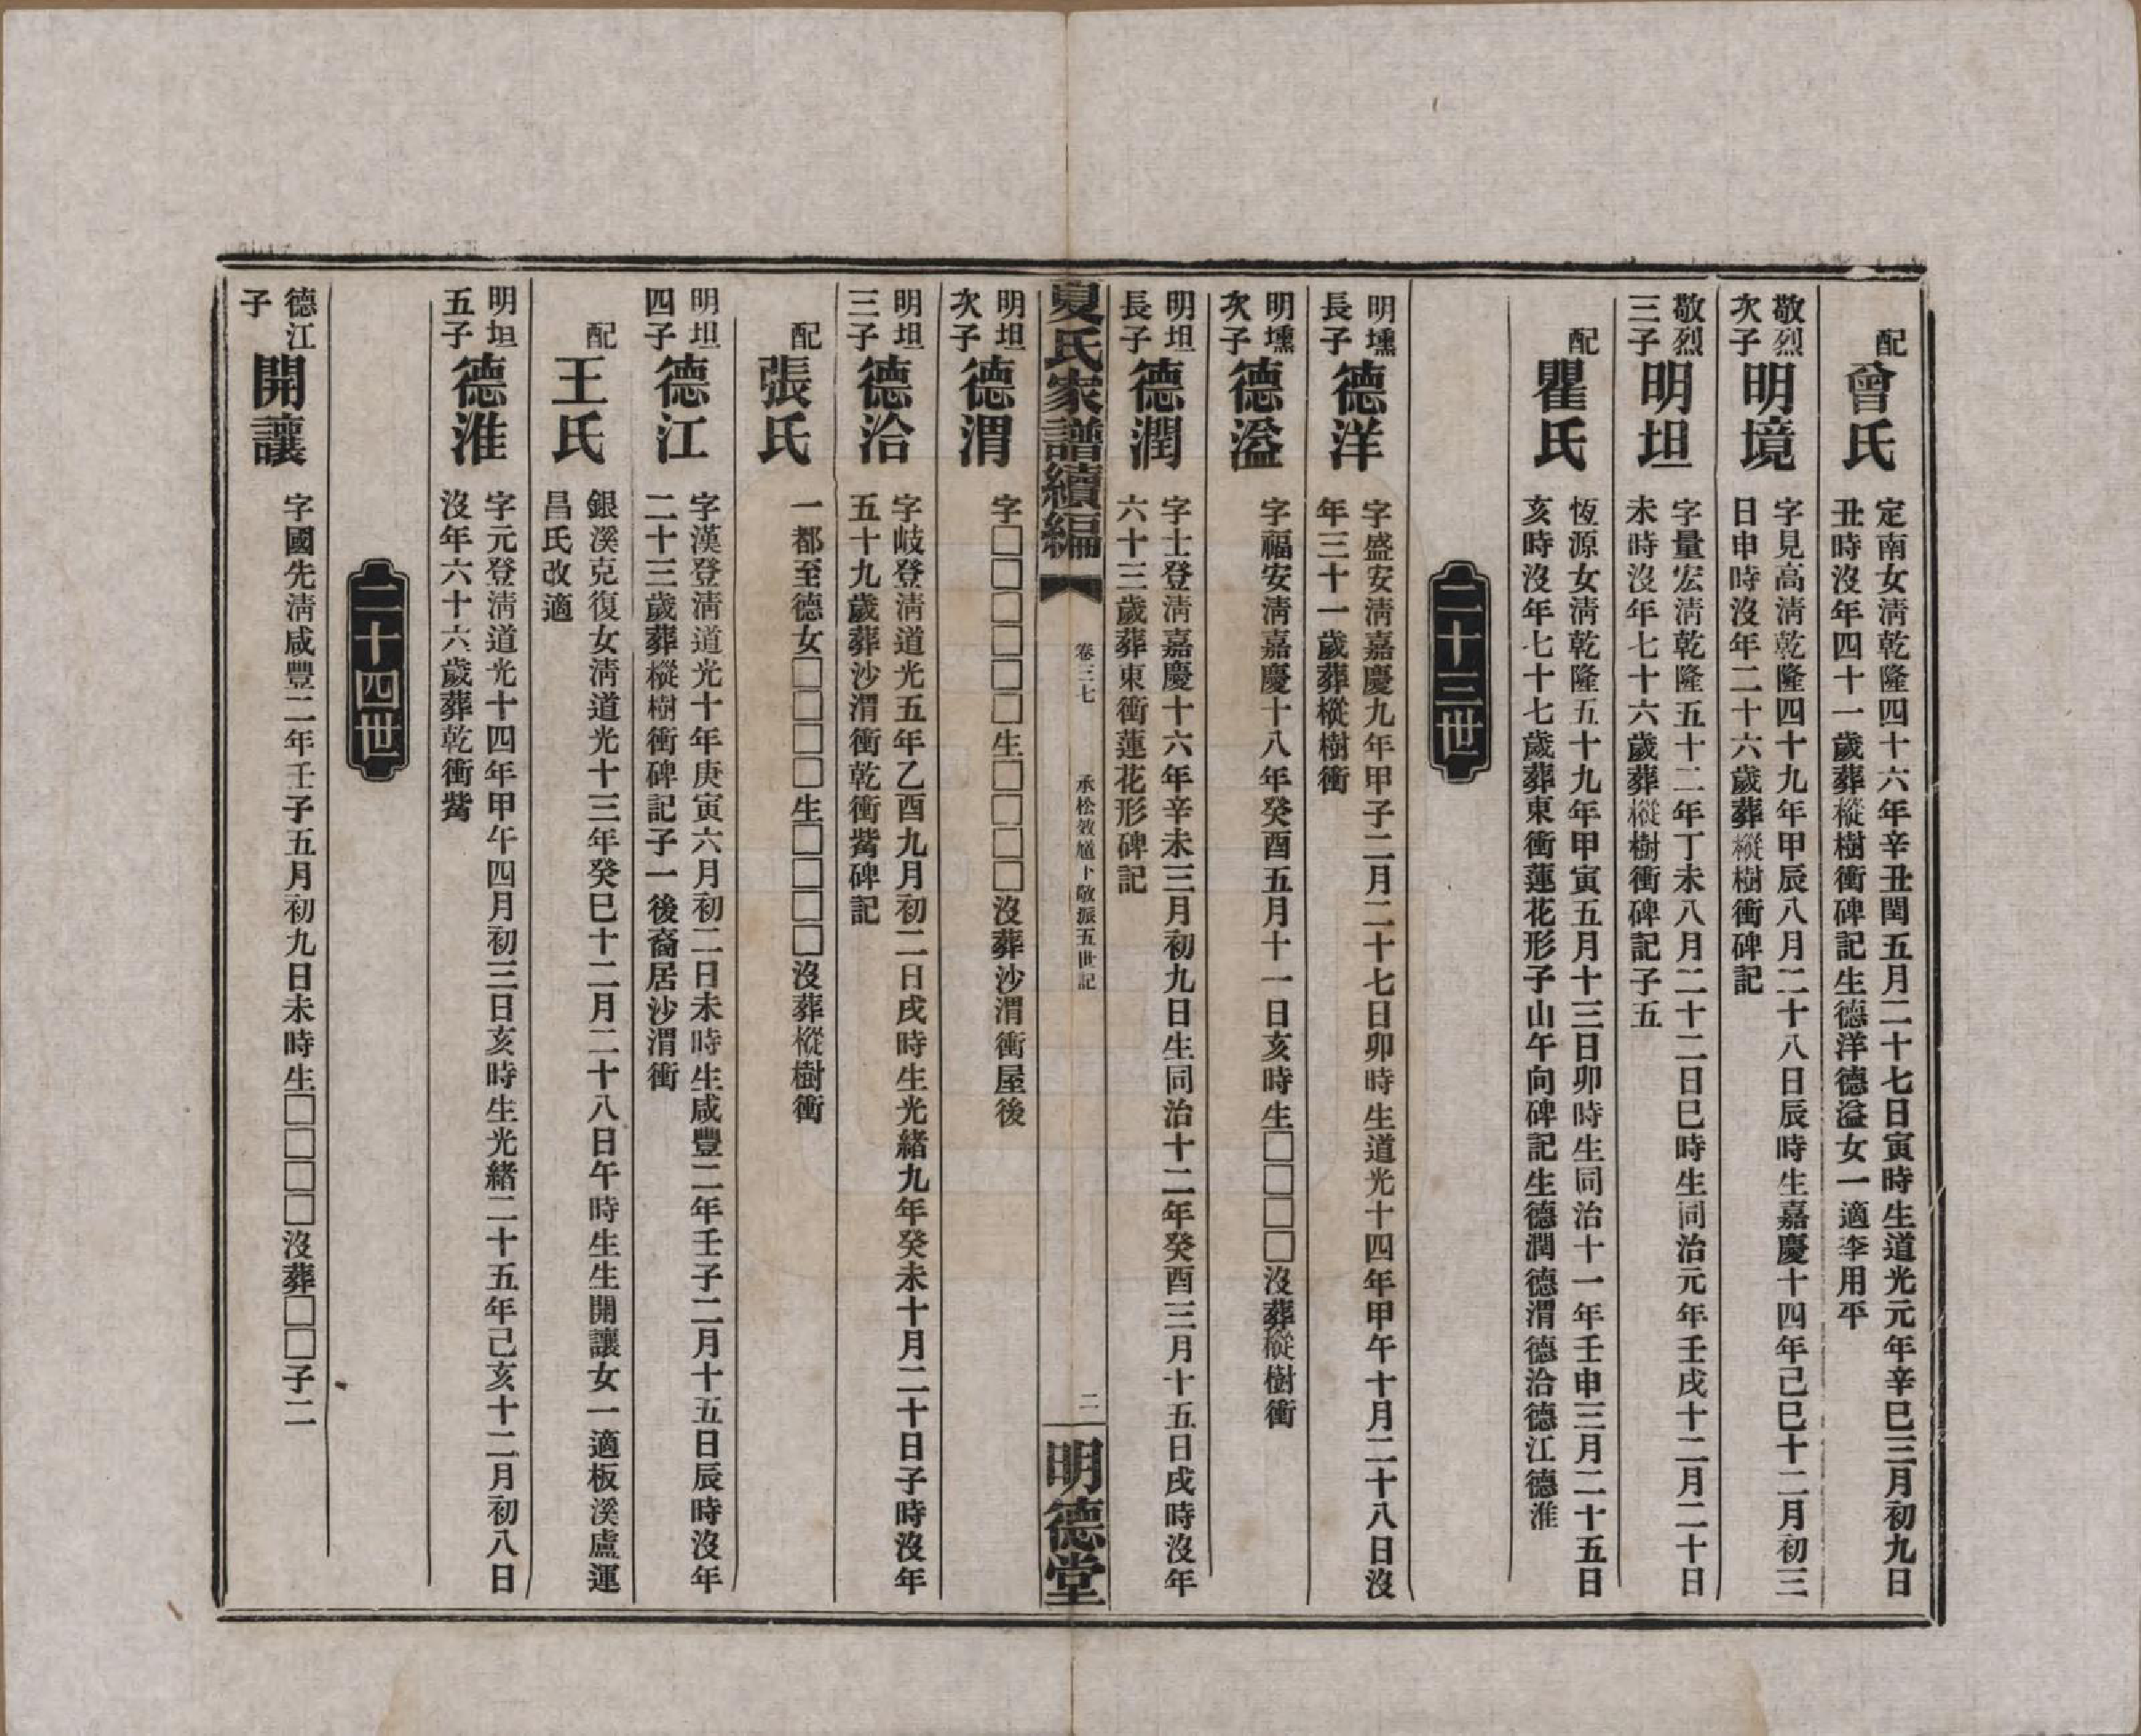 配
曾氏
定南女淸乾隆四十六年辛丑閏五月二十七日寅時生道光元年辛巳三月初九日
丑時沒年四十一歲葬樅樹衝碑記生德洋德溢女一適李用平
敬烈
次子
明境
字見高淸乾隆四十九年甲辰八月二十八日辰時生嘉慶十四年己巳十二月初三
日申時沒年二十六歲葬樅樹衝碑記
敬烈
三子
明坦
字量宏淸乾隆五十二年丁未八月二十二日巳時生同治元年壬戌十二月二十日
未時沒年七十六歲葬樅樹衝碑記子五
配
瞿氏
恆源女淸乾隆五十九年甲寅五月十三日卯時生同治十一年壬申三月二十五日
亥時沒年七十七歲葬東衝蓮花形子山午向碑記生德潤德渭德洽德江德淮
二十三世
明壎
長子
德洋
字盛安淸嘉慶九年甲子二月二十七日卯時生道光十四年甲午十月二十八日沒
年三十一歲葬樅樹衝
明壎
次子
德溢
字福安淸嘉慶十八年癸酉五月十一日亥時生□□□□沒葬樅樹衝
明坦
長子
德潤
字士登淸嘉慶十六年辛未三月初九日生同治十二年癸酉三月十五日戌時沒年
六十三歲葬東衝蓮花形碑記
夏氏家譜續編
卷三七
承松效馗卜敬振五世記
二
明德堂
明坦
次子
德渭
字□□□□□□生□□□□沒葬沙渭衝屋後
明坦
三子
德洽
字岐登淸道光五年乙酉九月初二日戌時生光緒九年癸未十月二十日子時沒年
五十九歲葬沙渭衝乾衝觜碑記
配
張氏
一都至德女□□□□生□□□□沒葬樅樹衝
明坦
四子
德江
字漢登淸道光十年庚寅六月初二日未時生咸豐二年壬子二月十五日辰時沒年
二十三歲葬樅樹衝碑記子一後裔居沙渭衝
配
王氏
銀溪克復女淸道光十三年癸巳十二月二十八日午時生生開讓女一適板溪盧運
昌氏改適
明坦
五子
德淮
字元登淸道光十四年甲午四月初三日亥時生光緒二十五年己亥十二月初八日
沒年六十六歲葬乾衝觜
二十四世
德江
子
開讓
字國先淸咸豐二年壬子五月初九日未時生□□□□沒葬□□子二